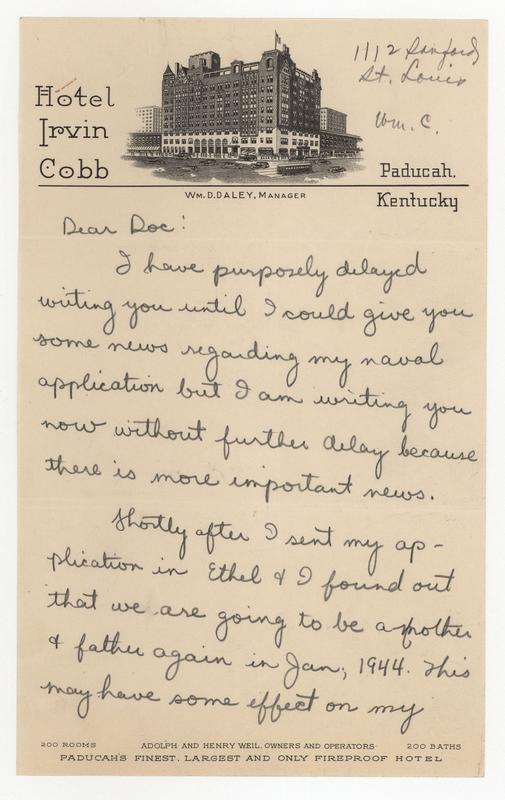 1112 Sanford
St. Louis
Wm. C.
Hotel
Irvin
Cobb
Paducah,
Kentucky
WM. D. DALEY, MANAGER
Dear Doc:
I have purposely delayed
writing you until I could give you
some news regarding my naval
application but I am writing you
now without further delay because
there is more important news.
Shortly after I sent my ap-
plication in Ethel & I found out
that we are going to be a mother
& father again in Jan, 1944. This
may have some effect on my
200 ROOMS ADOLPH AND HENRY WEIL, OWNERS AND OPERATORS 200 BATHS
PADUCAH'S FINEST, LARGEST AND ONLY FIREPROOF HOTEL